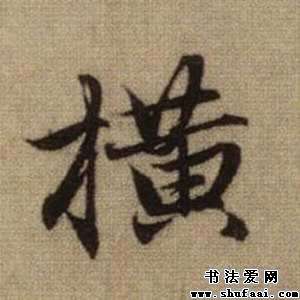 橫
书法爱网
www.shufaai.com